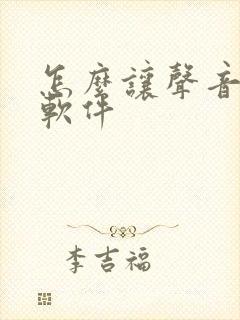 怎麼讓聲音
軟件
李吉福